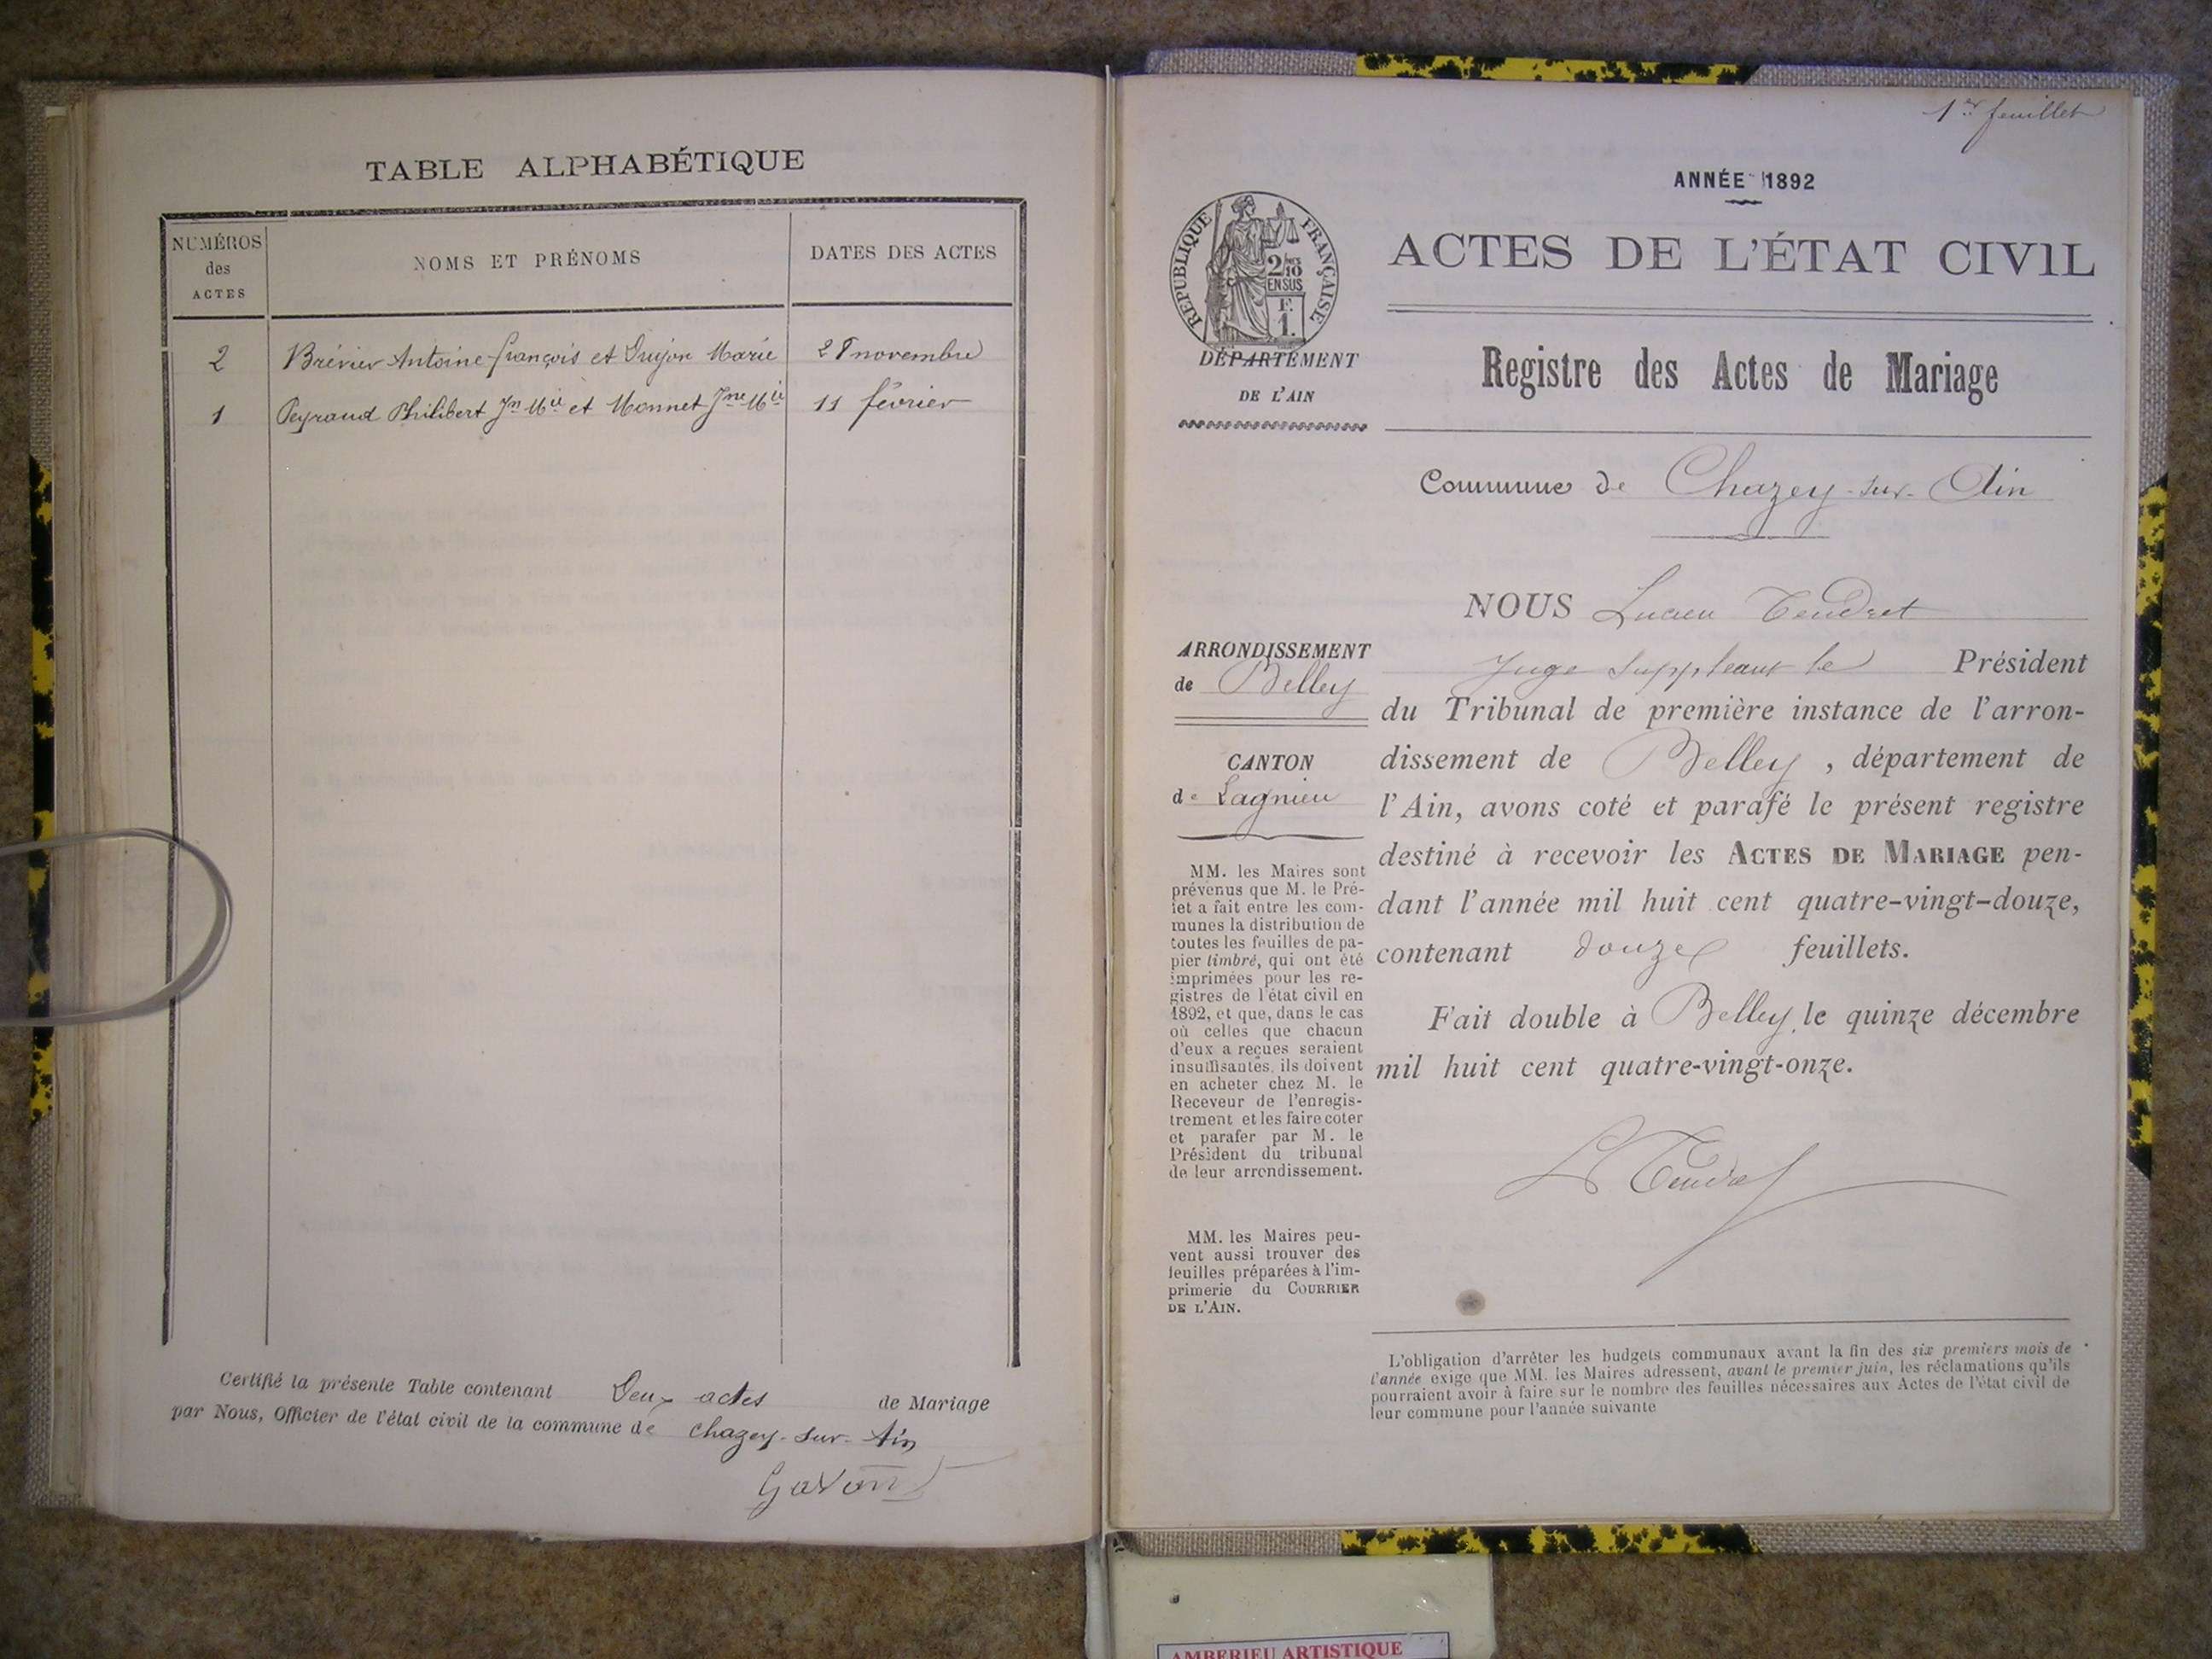 TABLE ALPHABÉTIQUE
NUMÉROS des ACTES
NOMS ET PRÉNOMS
DATES DES ACTES
2 Brévier Antoine-françois et Guyon Marie novembre
1 Peyraud Philibert Jn Mie et Monnet Jne Mie 11 février
Certifié la présente Table contenant Deux actes de Mariage
par Nous, Officier de l'état civil de la commune de Chazey-sur-Ain
1er feuillet
ANNÉE 1892
RÉPUBLIQUE FRANÇAISE
2/10
EN SUS
F.
1.
ACTES DE L'ÉTAT CIVIL
DÉPARTEMENT
DE L'AIN
Registre des Actes de Mariage
Commune de Chazey-sur-Ain
NOUS Lucien Tendret
Juge Suppléant le Président
du Tribunal de première instance de l'arron-
dissement de Belley, département de
l'Ain, avons coté et parafé le présent registre
destiné à recevoir les ACTES DE MARIAGE pen-
dant l'année mil huit cent quatre-vingt-douze,
contenant douze feuillets.
Fait double à Belley, le quinze décembre
mil huit cent quatre-vingt-onze.
L Tendret
ARRONDISSEMENT
de Belley
CANTON
de Lagnieu
MM. les Maires sont
prévenus que M. le Pré-
fet a fait entre les com-
munes la distribution de
toutes les feuilles de pa-
pier timbré, qui ont été
imprimées pour les re-
gistres de l'état civil en
1892, et que, dans le cas
où celles que chacun
d'eux a reçues seraient
insuffisantes, ils doivent
en acheter chez M. le
Receveur de l'enregis-
trement et les faire coter
et parafer par M. le
Président du tribunal
de leur arrondissement.
MM. les Maires peu-
vent aussi trouver des
feuilles préparées à l'im-
primerie du COURRIER
DE L'AIN.
L'obligation d'arrêter les budgets communaux avant la fin des six premiers mois de
l'année exige que MM. les Maires adressent, avant le premier juin, les réclamations qu'ils
pourraient avoir à faire sur le nombre des feuilles nécessaires aux Actes de l'état civil de
leur commune pour l'année suivante
AMBERIEU ARTISTIQUE